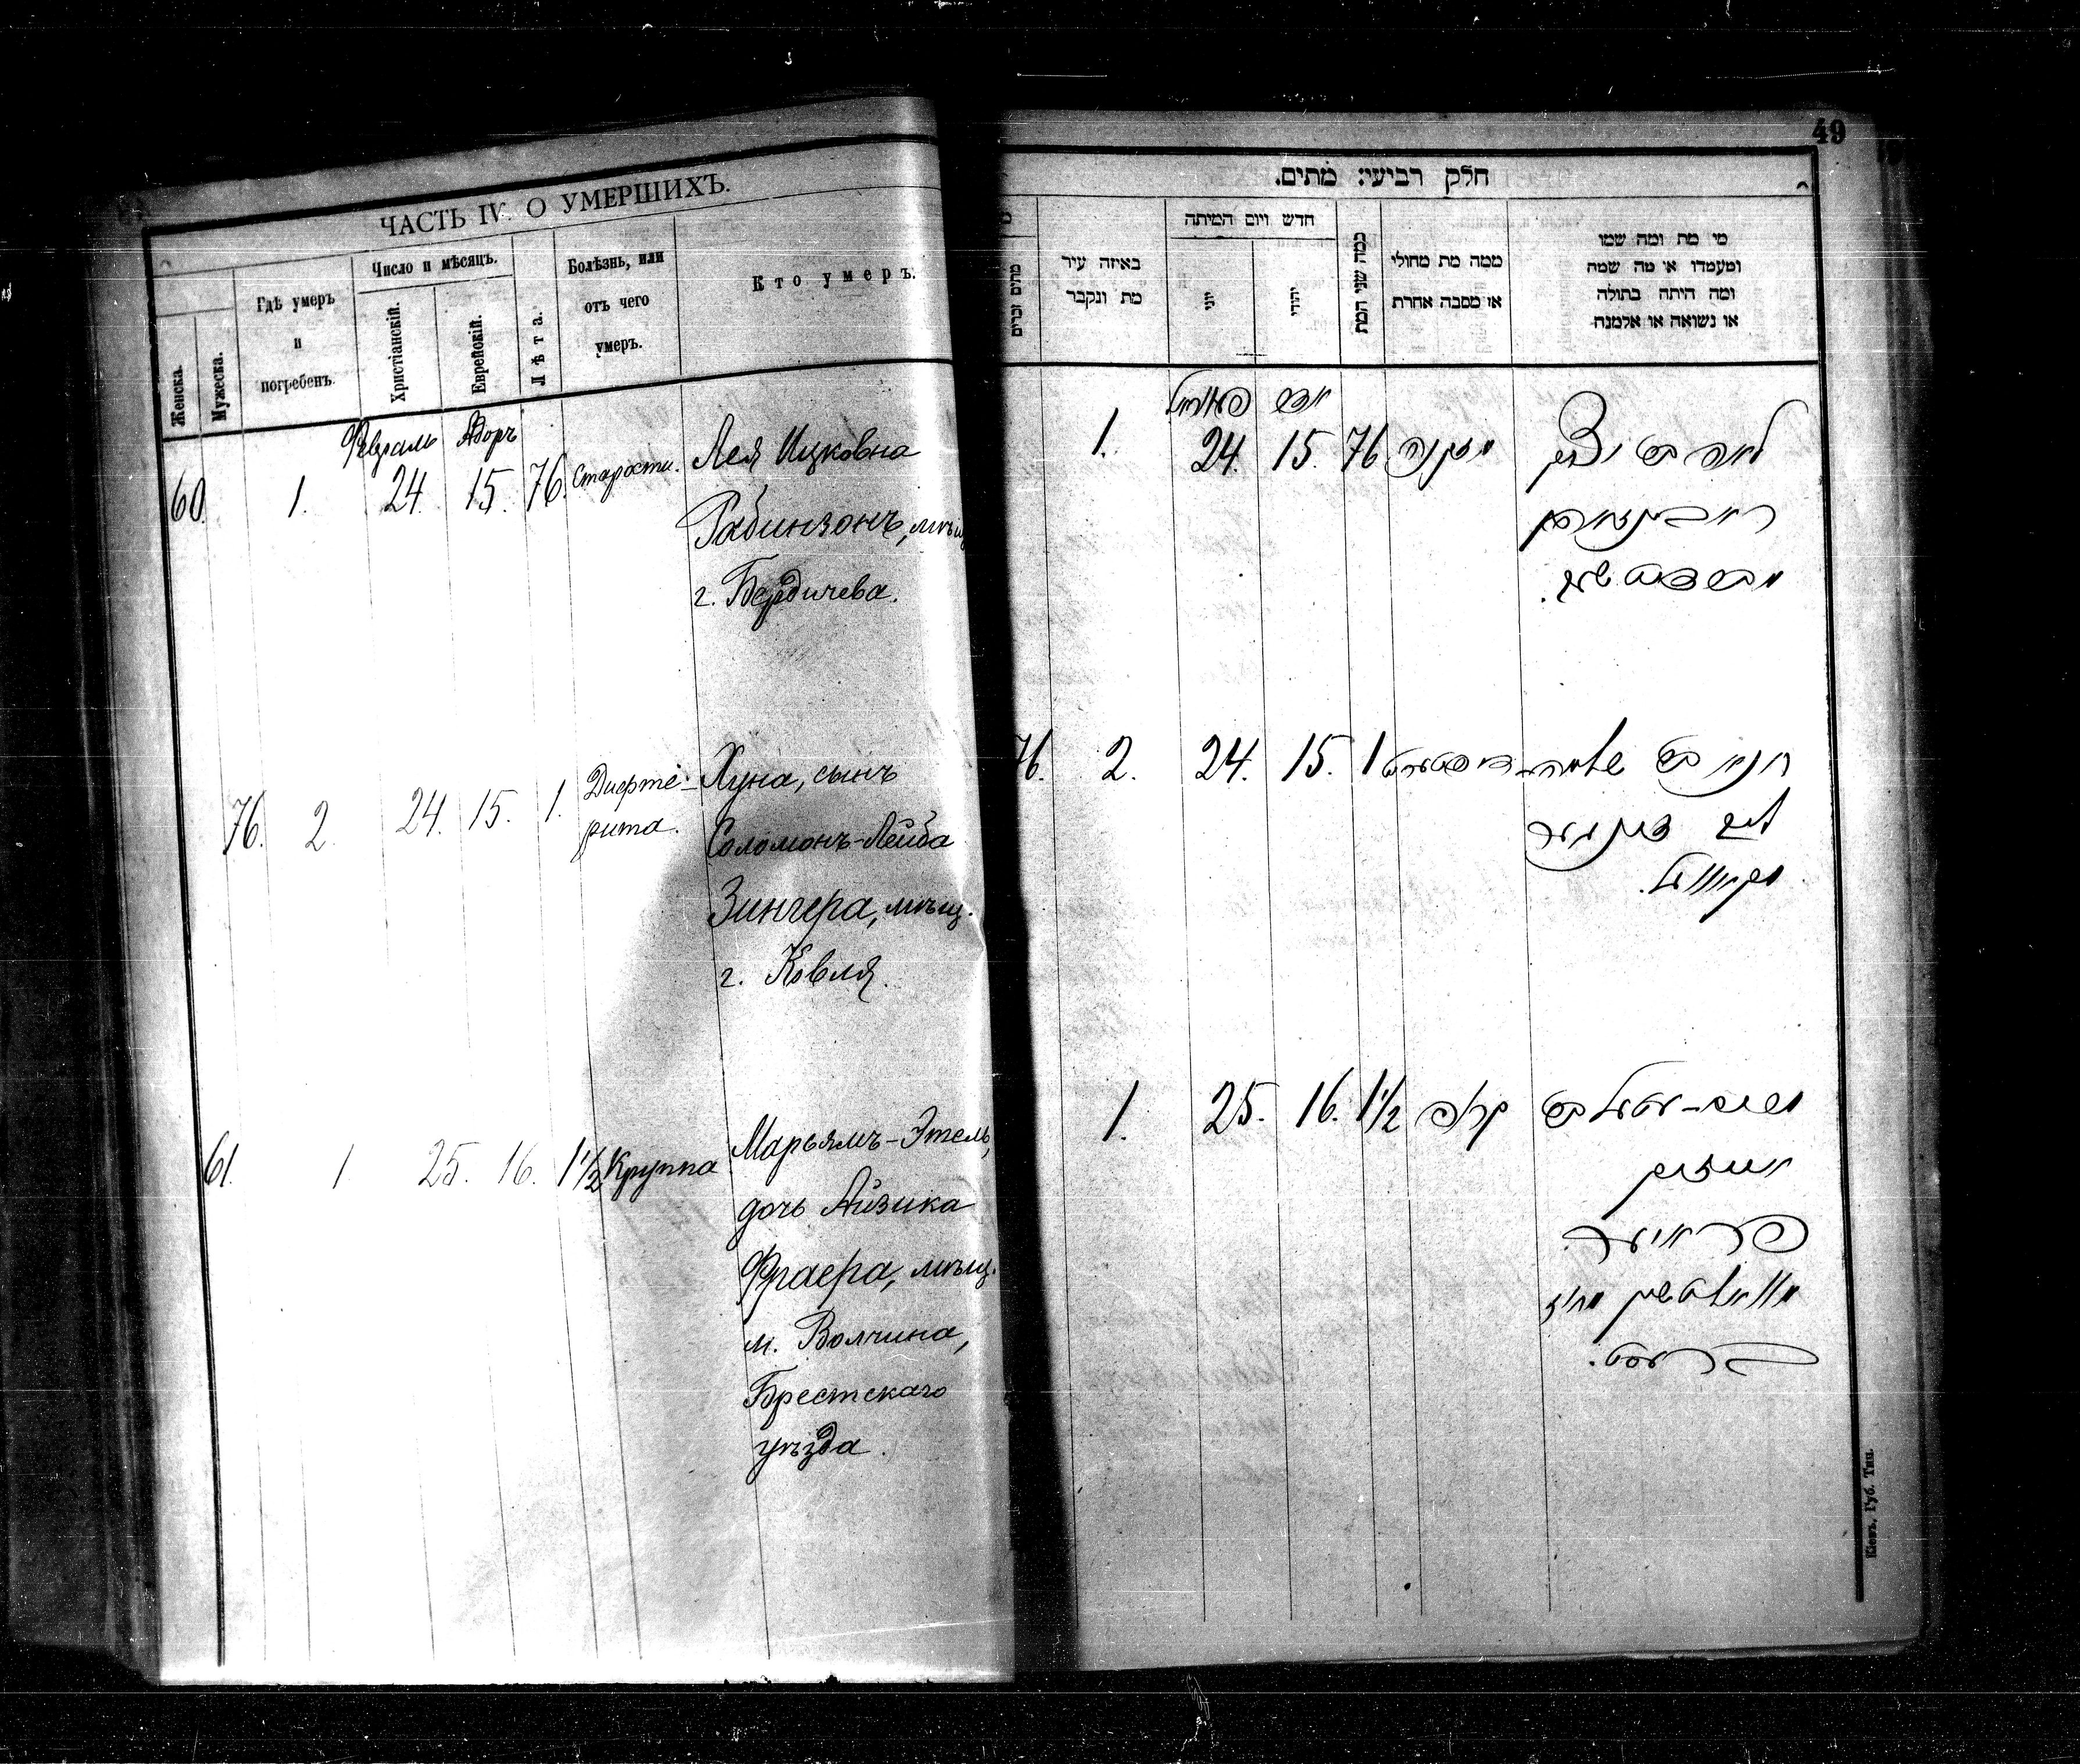 ЧАСТЬ IV. О УМЕРШИХЪ.
Женска.
Мужеска.
Гдѣ умеръ
и
погребенъ.
Число и мѣсяцъ.
Христіанскій.
Еврейскій.
Лѣта.
Болѣзнь, или
отъ чего
умеръ.
Кто умеръ.
Февраль Адоръ
60. 1. 24. 15. 76. Старости. Лея Ицковна
Рабинзонъ, мѣщ.
г. Бердичева.
76. 2. 24. 15. 1. Дифте-
рита.
Хуна, сынъ
Соломонъ-Лейба
Зингера, мѣщ.
г. Ковля.
61. 1 25. 16. 1 1/2 Круппа
Марьямъ-Этель,
дочь Айзика
Фраера, мѣщ.
м. Волчина,
Брестскаго
уѣзда.
49
חלק רביעי: מתים.
מתים זכרים
באיזה עיר
מת ונקבר
חדש ויום המיתה
יוני
יהודי
כמה שני המת
ממה מת מחולי
או מסבה אחרת
מי מת ומה שמו
ומעמדו או מה שמה
ומה היתה בתולה
או נשואה או אלמנה
1. 24. 15. 76 מזקנה
לאה בת יצחק
ראבינזאהן
76. 2. 24. 15. 1
זינגער
1. 25. 16. 1 1/2 קרופ
אייזיק
פראיער
Кіевъ, Губ. Тип.